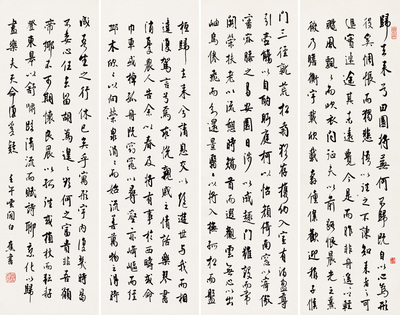 歸去來兮田園將蕪胡不歸既自以心為形
役奚惆悵而獨悲悟已往之不諫知來者之可
追實迷途其未遠覺今是而昨非舟遙遙以輕
颺風飄飄而吹衣問征夫以前路恨晨光之熹
微乃瞻衡宇載欣載奔僮僕歡迎稚子候
門三徑就荒松菊猶存攜幼入室有酒盈樽
引壺觴以自酌眄庭柯以怡顏倚南窗以寄傲
審容膝之易安園日涉以成趣門雖設而常
關策扶老以流憩時矯首而遐觀雲無心以出
岫鳥倦飛而知還景翳翳以將入撫孤松而盤
桓歸去來兮請息交以絕遊世與我而相
違復駕言兮焉求悅親戚之情話樂琴書以
消憂農人告余以春及將有事於西疇或命
巾車或棹孤舟既窈窕以尋壑亦崎嶇而經
邱木欣欣以向榮泉涓涓而始流善萬物之得時
感吾生之行休已矣乎寓形宇內復幾時曷
不委心任去留胡為遑遑欲何之富貴非吾願
帝鄉不可期懷良辰以孤往或植杖而耘耔
登東皋以舒嘯臨清流而賦詩聊乘化以歸
盡樂夫天命復奚疑
壬午雲間白蕉書